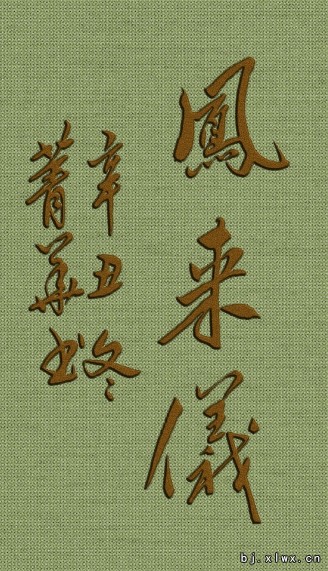 鳳来儀
辛丑冬
菁華书
bj.xlwx.cn